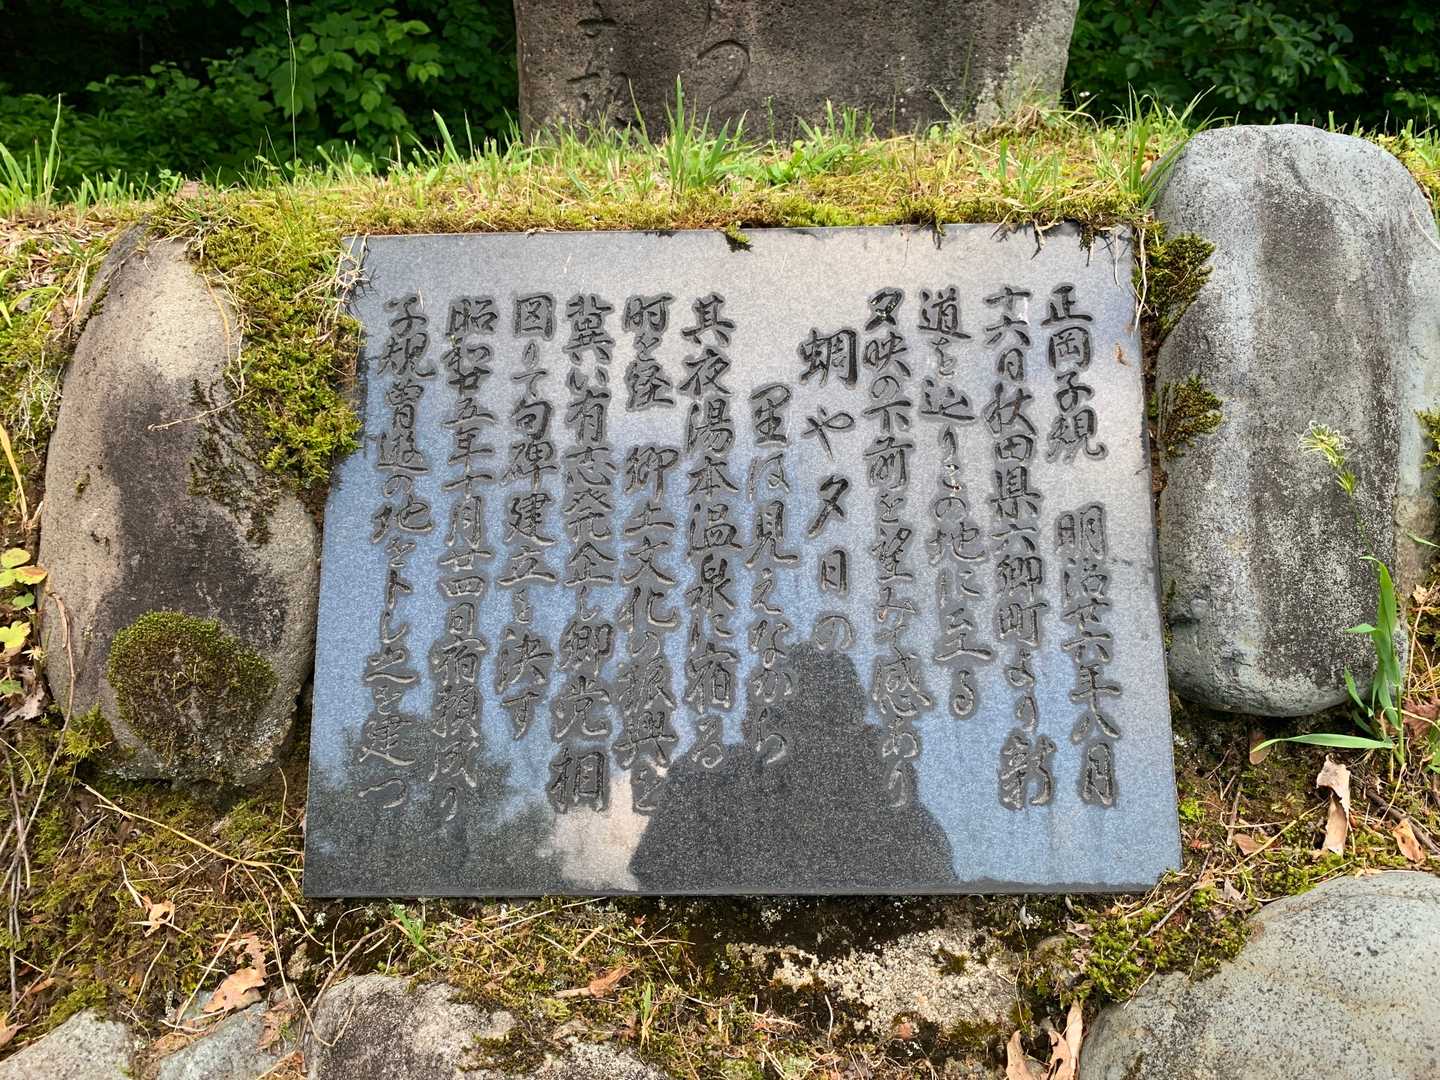 正岡子規　明治廿六年八月
十六日秋田県六郷町より新
道を辿りこの地に至る
夕映の下前を望みて感あり
蜩や夕日の
里は見えなから
其夜湯本温泉に宿る
時を経　郷土文化の振興を
冀い有志発企し郷党相
図りて句碑建立を決す
昭和廿五年十月廿四日宿願成り
子規曽遊の地を卜し之を建つ